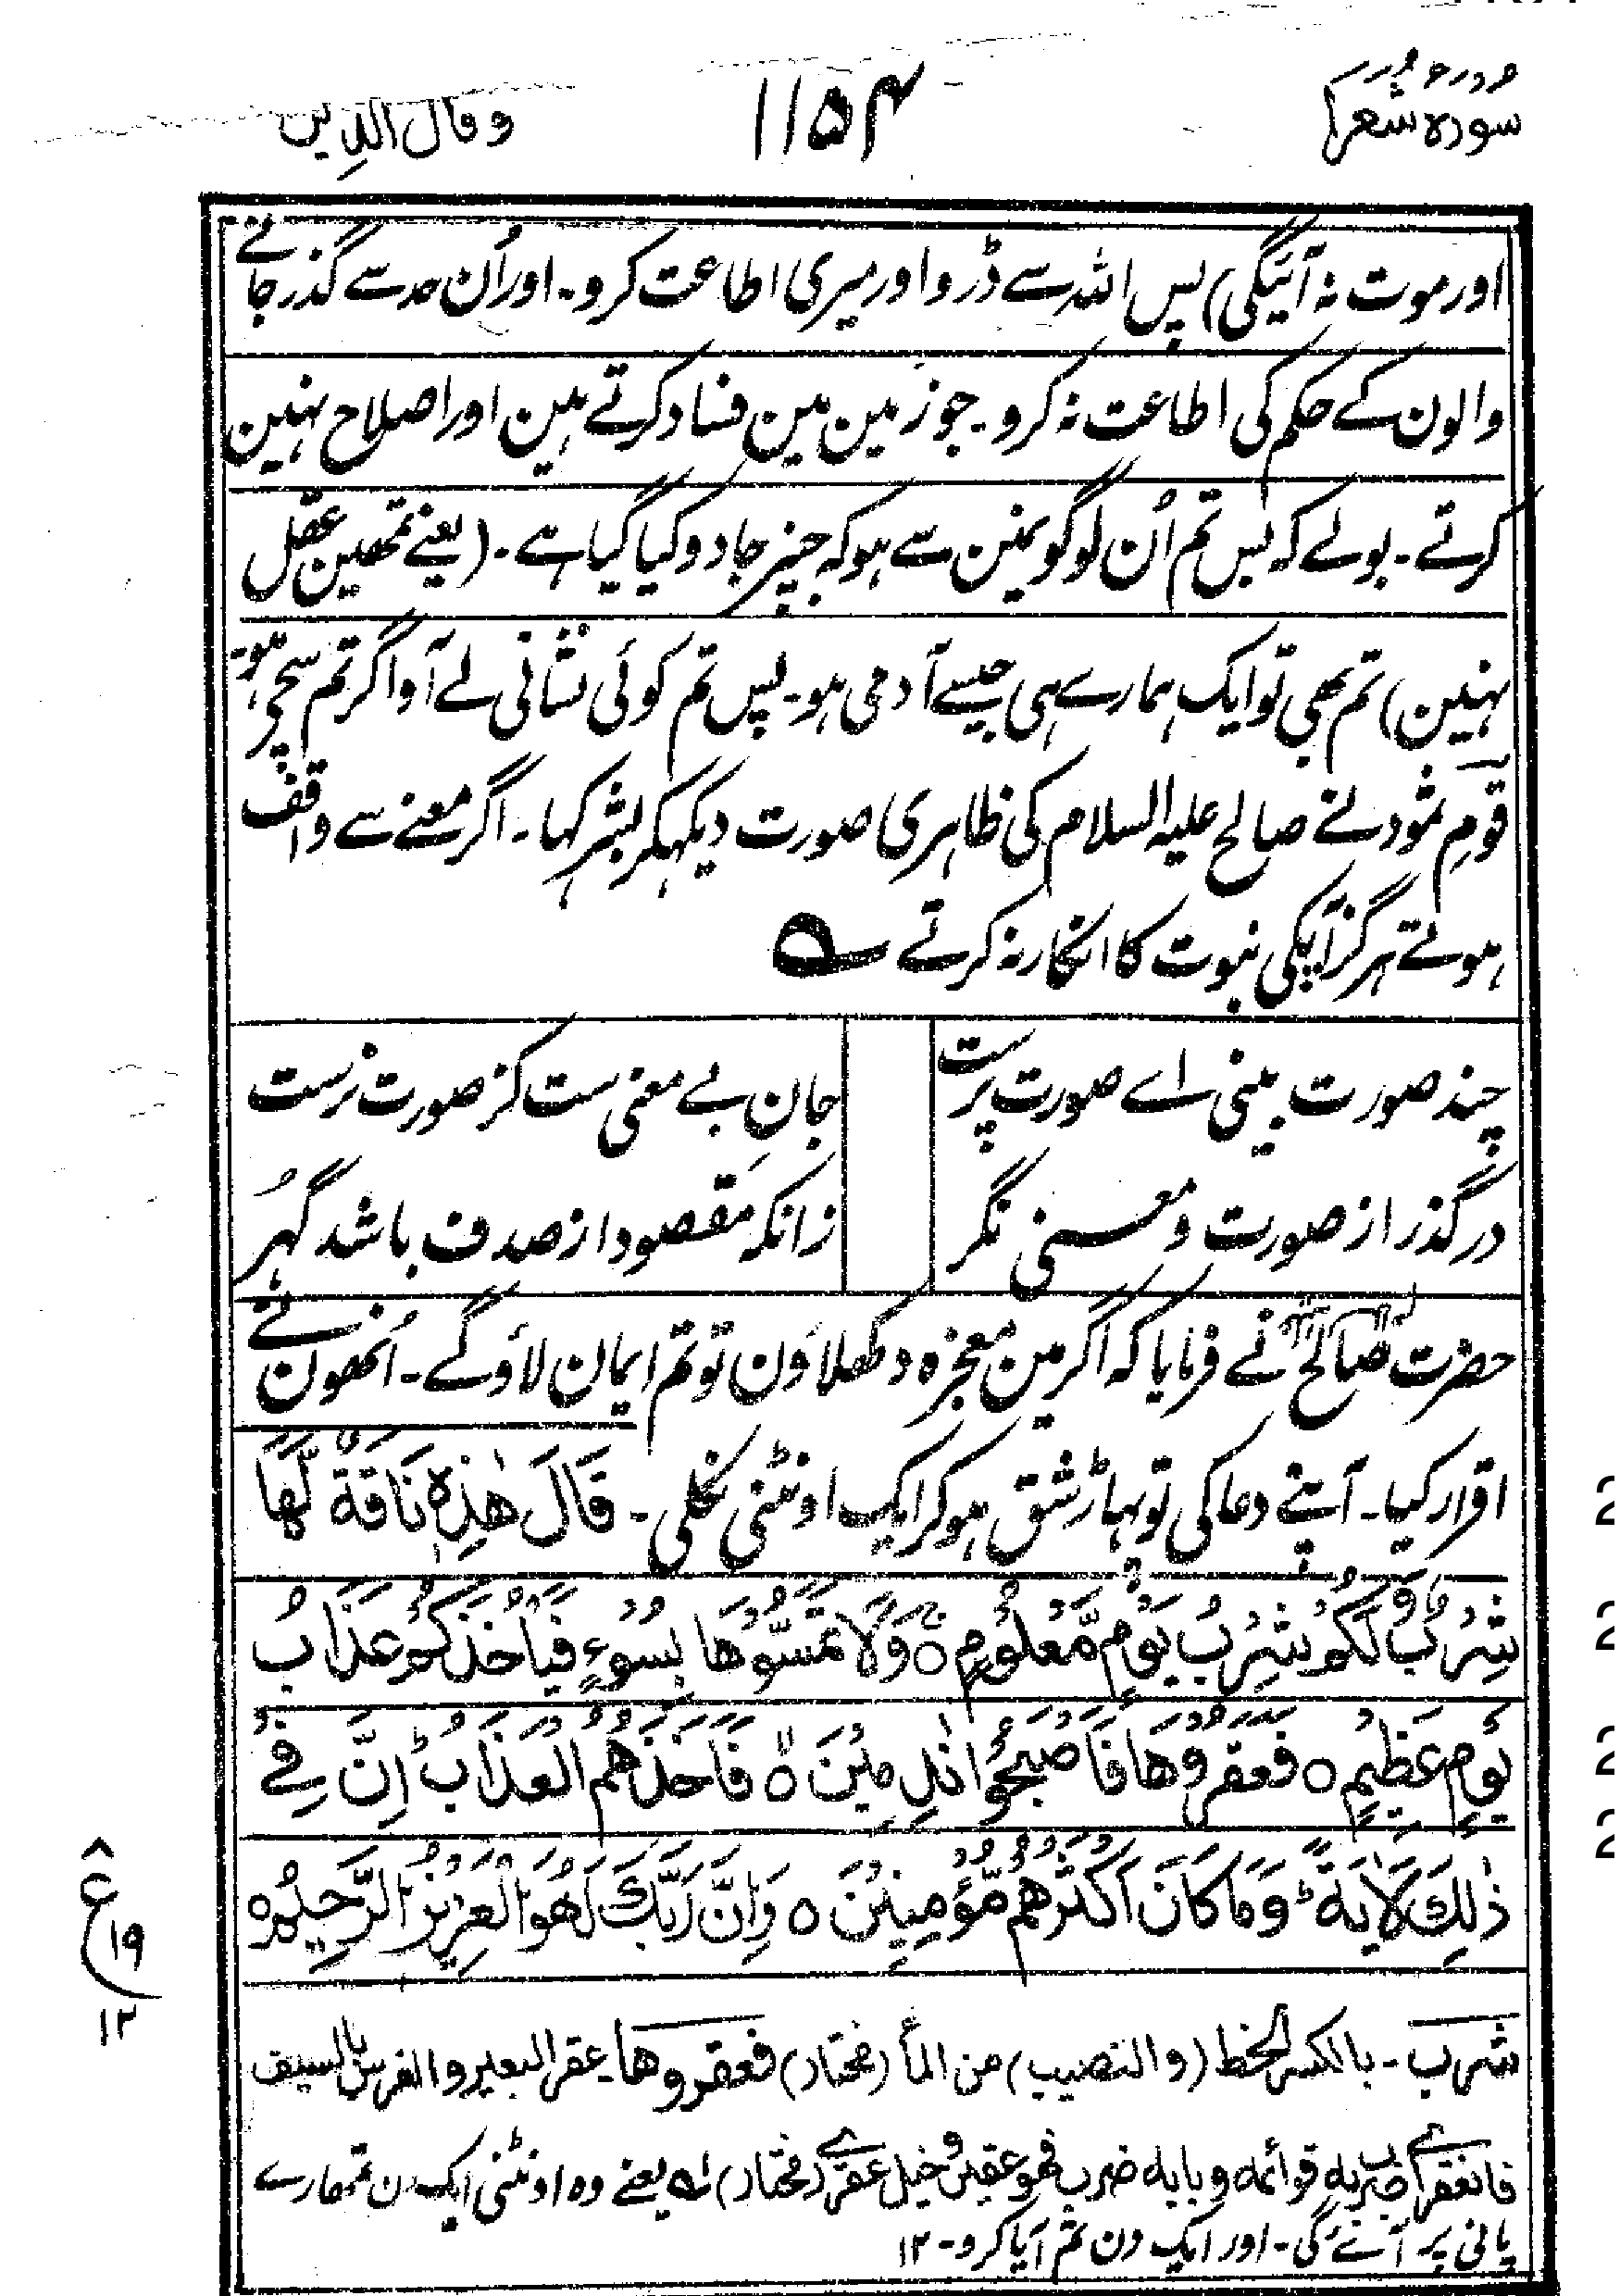 سورہ شعرا
۱۱۵۴
وقال الذین
اور موت نہ آئیگی) پس اللہ سے ڈرو اور میری اطاعت کرو۔ اور اُن حد سے گذر جانے
والون کے حکم کی اطاعت نہ کرو۔ جو زمین مین فساد کرتے ہین اور اصلاح نہین
کرتے۔ بولے کہ بس تم اُن لوگونمین سے ہو کہ جنپر جادو کیا گیا ہے۔ (یعنے تمھین عقل
نہین) تم بھی تو ایک ہمارے ہی جیسے آدمی ہو۔ پس تم کوئی نشانی لے آو اگر تم سچے ہو۔
قومِ ثمود نے صالح علیہ السلام کی ظاہری صورت دیکھکر بشر کہا۔ اگر معنے سے واقف
ہوتے ہرگز آپکی نبوت کا انکار نہ کرتے ؎
چند صورت بینی اے صورت پرست
جانِ بے معنی ست کز صورت نرست
درگذر از صورت و معنی نگر
زانکہ مقصود از صدف باشد گہر
حضرت صالح علیہ السلام نے فرمایا کہ اگر مین معجزہ دکھلاؤن تو تم ایمان لاؤگے۔ اُنھون نے
اقرار کیا۔ آپنے دعا کی تو پہاڑ شق ہو کر ایک اونٹنی نکلی۔ قَالَ هٰذِهٖ نَاقَةٌ لَّهَا
شِرْبٌ وَّلَكُمْ شِرْبُ يَوْمٍ مَّعْلُوْمٍ ۝ وَلَا تَمَسُّوْهَا بِسُوْءٍ فَيَاْخُذَكُمْ عَذَابُ
يَوْمٍ عَظِيْمٍ ۝ فَعَقَرُوْهَا فَاَصْبَحُوْا نٰدِمِيْنَ ۝ فَاَخَذَهُمُ الْعَذَابُ ؕ اِنَّ فِيْ
ذٰلِكَ لَاٰيَةً ؕ وَمَا كَانَ اَكْثَرُهُمْ مُّؤْمِنِيْنَ ۝ وَاِنَّ رَبَّكَ لَهُوَ الْعَزِيْزُ الرَّحِيْمُ ۝
ع
۱۹
۱۲
شرب۔ بالکسر الحظ (والنصیب) من الماٗ (مختار) فعقروھا۔ عقر البعیر والفرس بالسیف
فانعقر اے ضرب بہ قوائمہ وبابہ ضرب فھو عقیر وخیل عقرے (مختار) لہ یعنے وہ اونٹنی ایک دن تمھارے
پانی پر آئے گی۔ اور ایک دن تم آیا کرو۔ ۱۲